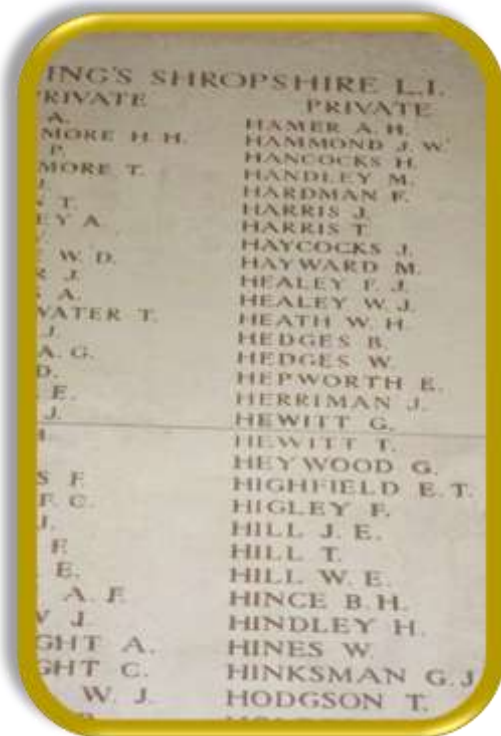 ING'S SHROPSHIRE L.I.
PRIVATE
A.
MORE H. H.
P.
MORE T.
J.
T.
EY A.
W. D.
R J.
A.
WATER T.
J.
A. G.
D.
E.
J.
H.
S F.
F. C.
J.
F.
E.
A. F.
W J.
GHT A.
GHT C.
W. J.
PRIVATE
HAMER A. H.
HAMMOND J. W.
HANCOCKS H.
HANDLEY M.
HARDMAN F.
HARRIS J.
HARRIS T.
HAYCOCKS J.
HAYWARD M.
HEALEY F. J.
HEALEY W. J.
HEATH W. H.
HEDGES B.
HEDGES W.
HEPWORTH E.
HERRIMAN J.
HEWITT G.
HEWITT T.
HEYWOOD G.
HIGHFIELD E. T.
HIGLEY F.
HILL J. E.
HILL T.
HILL W. E.
HINCE B. H.
HINDLEY H.
HINES W.
HINKSMAN G. J
HODGSON T.